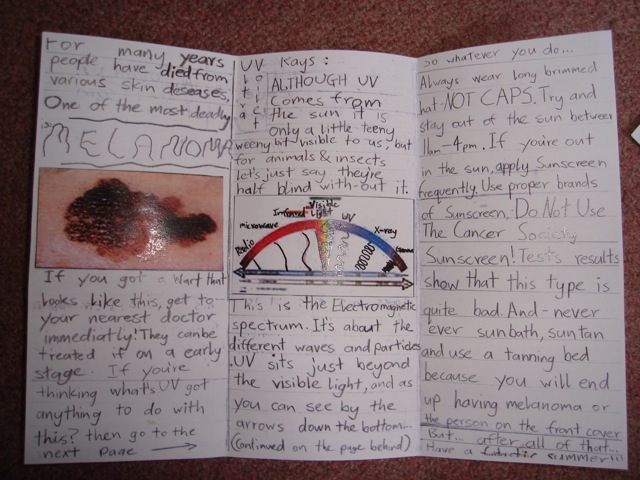 For many years
people have died from
various skin deseases,
One of the most deadly
is:
MELANOMA
If you got a wart that
looks like this, get to
your nearest doctor
immediatly! They can be
treated if on a early
stage. If you're
thinking what's UV got
anything to do with
this? then go to the
next page →
UV Rays:
ALTHOUGH UV
Comes from
the sun it is
only a little teeny
weeny bit visible to us, but
for animals & insects
let's just say they're
half blind with-out it.
Radio
microwave
Infrared
Visible
Light
UV
X-ray
Gamma
This is the Electromagnetic
spectrum. It's about the
different waves and particles
UV sits just beyond
the visible light, and as
you can see by the
arrows down the bottom...
(continued on the page behind)
So whatever you do...
Always wear long brimmed
hat-NOT CAPS. Try and
stay out of the sun between
11am-4pm. If you're out
in the sun, apply Sunscreen
frequently. Use proper brands
of Sunscreen, Do Not Use
The Cancer Society
Sunscreen! Tests results
show that this type is
quite bad. And-never
ever sunbath, suntan
and use a tanning bed
because you will end
up having melanoma or
the person on the front cover
But... after all of that...
Have a summer!!!